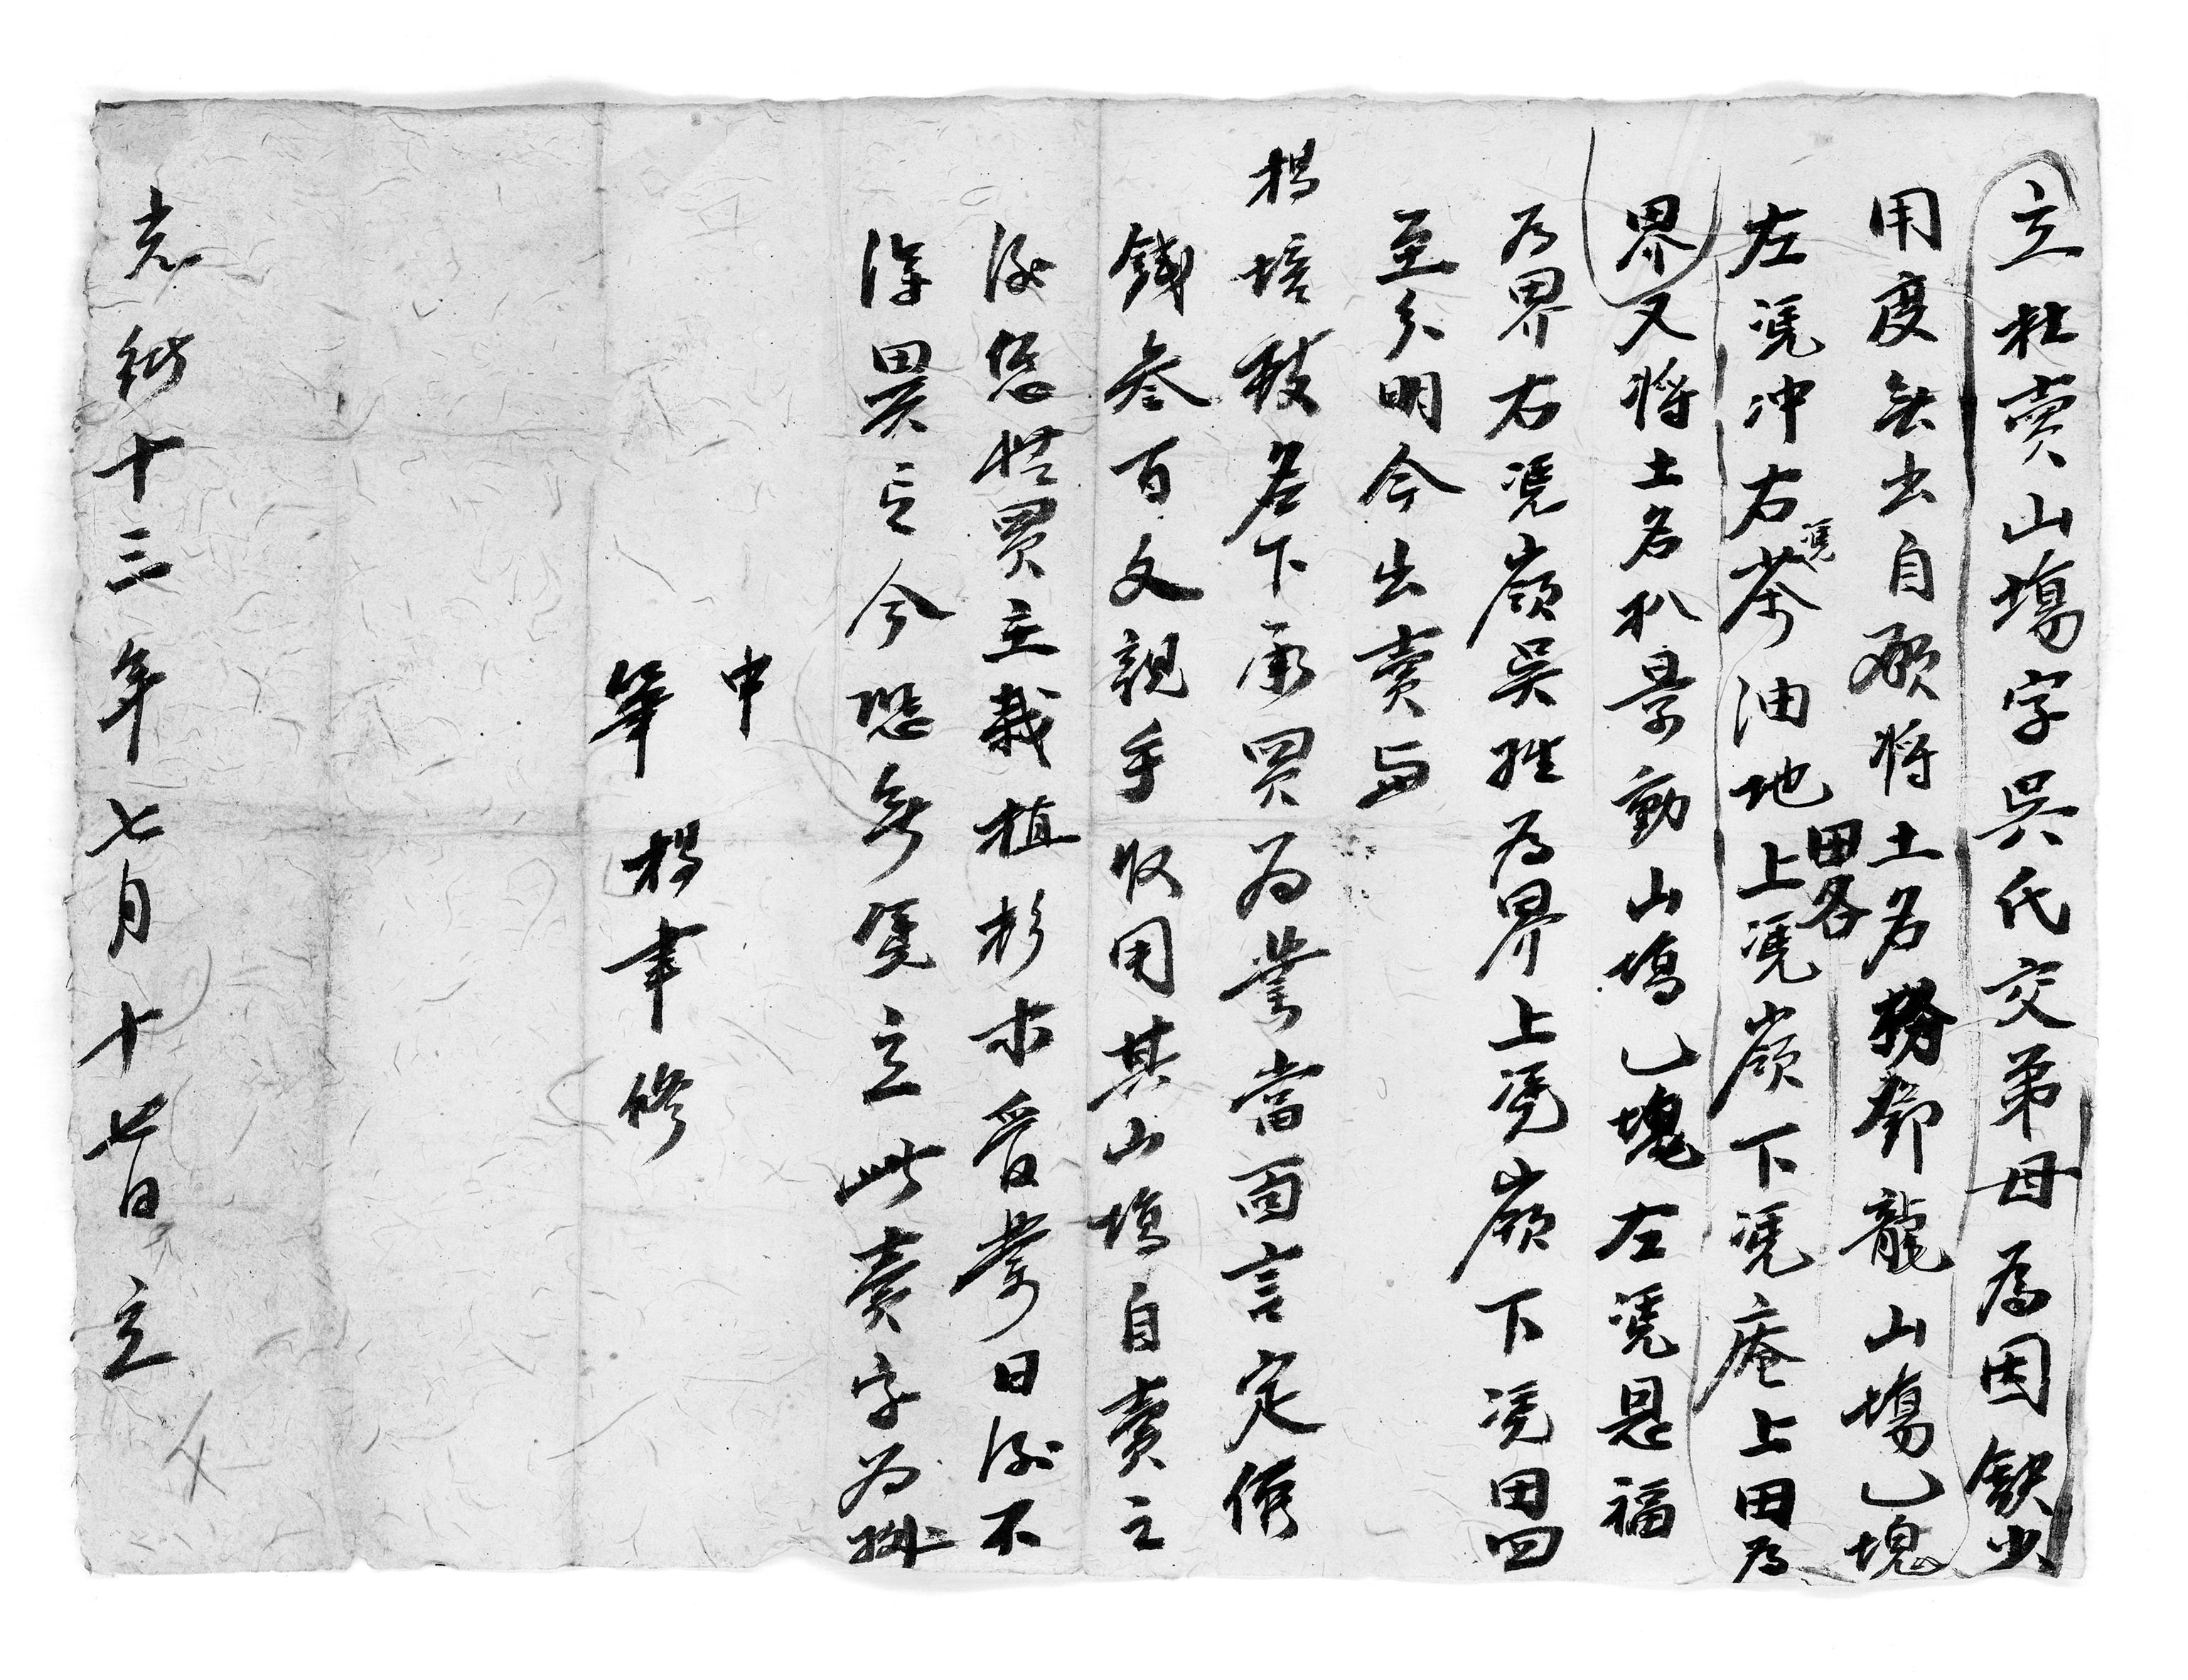 立杜賣山塲字吳氏交弟母為因缺少
用度無出自願將土名榜鄧龍山塲乙塊
田各
左凴冲右凴茶油地上凴嶺下凴庵上田為
界又將土名扒景勳山塲乙塊左凴恩福
為界右凴嶺吳姓為界上凴嶺下凴田四
至分明今出賣與
楊培發名下承買為業當面言定價
錢叁百文親手收用其山塲自賣之
後恁憑買主栽植杉木管業日後不
得異言今恐無凴立此賣字為據
中
筆 楊聿修
光緒十三年七月十七日立